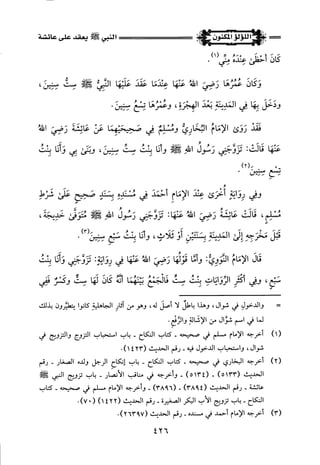 النبي ﷺ يعقد على عائشة
اللؤلؤ المكنون
كَانَ أَحْظَى عِنْدَهُ مِنِّي (١).
وَكَانَ عُمُرُهَا رَضِيَ اللهُ عَنْهَا عِنْدَمَا عَقَدَ عَلَيْهَا النَّبِيُّ ﷺ سِتَّ سِنِينَ،
وَدَخَلَ بِهَا فِي المَدِينَةِ بَعْدَ الهِجْرَةِ، وَعُمُرُهَا تِسْعُ سِنِينَ.
فَقَدْ رَوَى الإِمَامُ البُخَارِيُّ وَمُسْلِمٌ فِي صَحِيحَيْهِمَا عَنْ عَائِشَةَ رَضِيَ اللهُ
عَنْهَا قَالَتْ: تَزَوَّجَنِي رَسُولُ اللهِ ﷺ وَأَنَا بِنْتُ سِتِّ سِنِينَ، وَبَنَى بِي وَأَنَا بِنْتُ
تِسْعِ سِنِينَ (٢).
وفي رِوَايَةٍ أُخْرَى عِنْدَ الإِمَامِ أَحْمَدَ فِي مُسْنَدِهِ بِسَنَدٍ صَحِيحٍ عَلَى شَرْطِ
مُسْلِمٍ، قَالَتْ عَائِشَةُ رَضِيَ اللهُ عَنْهَا: تَزَوَّجَنِي رَسُولُ اللهِ ﷺ مُتَوَفَّى خَدِيجَةَ،
قَبْلَ مَخْرَجِهِ إِلَى المَدِينَةِ بِسَنَتَيْنِ أَوْ ثَلَاثٍ، وَأَنَا بِنْتُ سَبْعِ سِنِينَ (٣).
قَالَ الإِمَامُ النَّوَوِيُّ: وَأَمَّا قَوْلُهَا رَضِيَ اللهُ عَنْهَا فِي رِوَايَةٍ: تَزَوَّجَنِي وَأَنَا بِنْتُ
سَبْعٍ، وَفِي أَكْثَرِ الرِّوَايَاتِ بِنْتُ سِتٍّ فَالجَمْعُ بَيْنَهُمَا أَنَّهُ كَانَ لَهَا سِتٌّ وَكَسْرٌ فَفِي
= والدخول في شوال، وهذا باطلٌ لا أصل له، وهو من آثار الجاهلية كانوا يتطيرون بذلك
لما في اسم شوال من الإشالة والرفع.
(١) أخرجه الإمام مسلم في صحيحه - كتاب النكاح - باب استحباب التزوج والتزويج في
شوال، واستحباب الدخول فيه - رقم الحديث (١٤٢٣).
(٢) أخرجه البخاري في صحيحه - كتاب النكاح - باب إنكاح الرجل ولده الصغار - رقم
الحديث (٥١٣٣) (٥١٣٤) - وأخرجه في مناقب الأنصار - باب تزويج النبي ﷺ
عائشة - رقم الحديث (٣٨٩٤) (٣٨٩٦) - وأخرجه الإمام مسلم في صحيحه - كتاب
النكاح - باب تزويج الأب البكر الصغيرة - رقم الحديث (١٤٢٢) (٧٠).
(٣) أخرجه الإمام أحمد في مسنده - رقم الحديث (٢٦٣٩٧).
٤٢٦